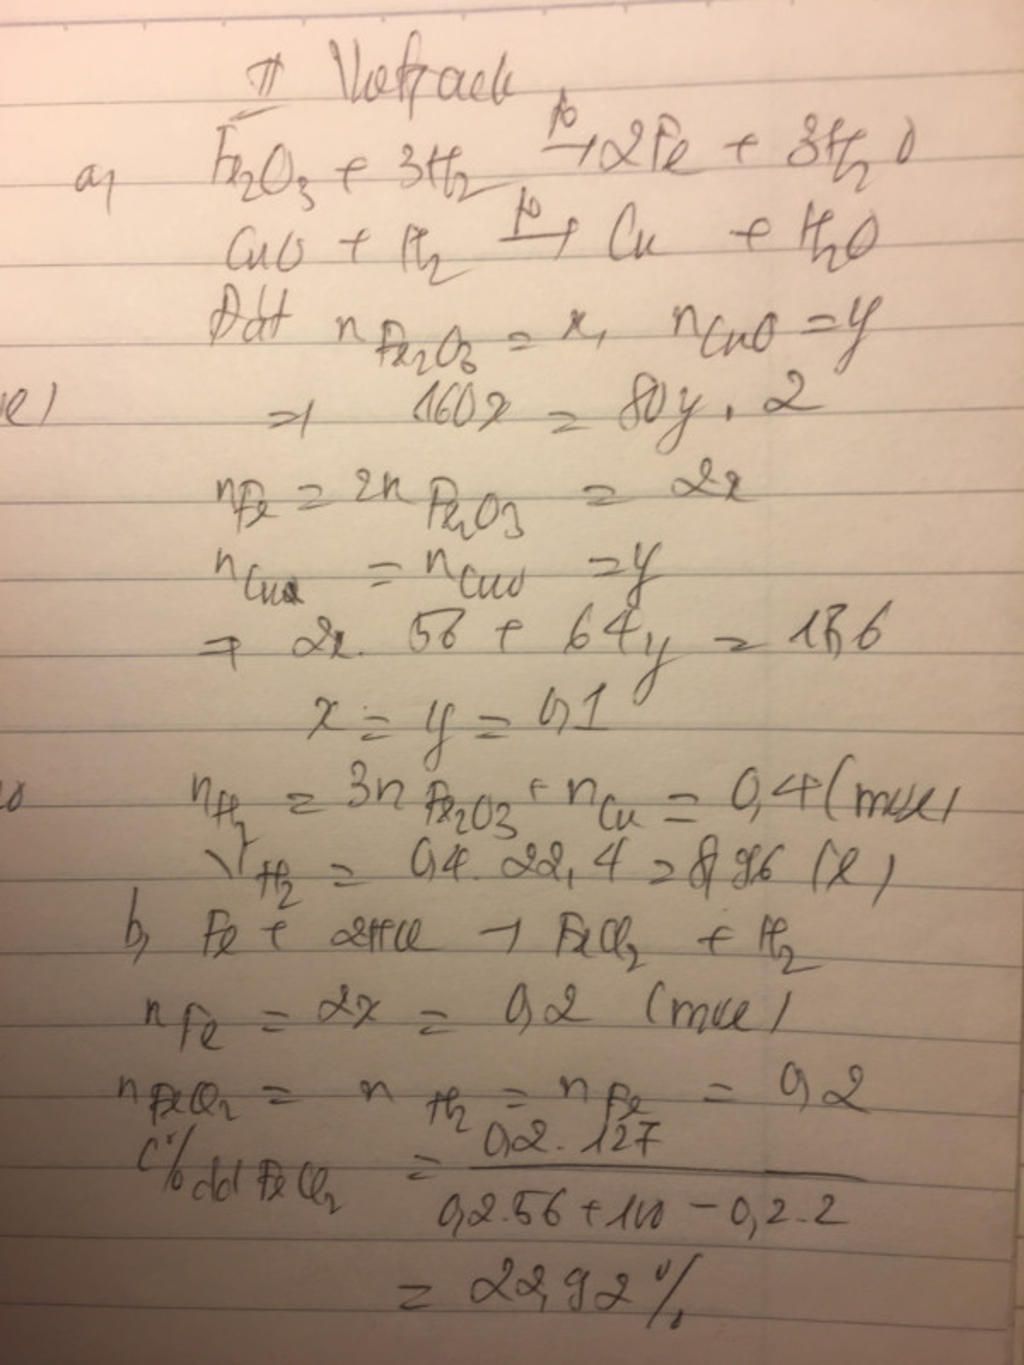 II Votrack
a, Fe2O3 + 3H2 →t° 2Fe + 3H2O
CuO + H2 →t° Cu + H2O
Đặt nFe2O3 = x, nCuO = y
⇒ 160x = 80y . 2
nFe = 2nFe2O3 = 2x
nCu = nCuO = y
⇒ 2x . 56 + 64y = 17,6
x = y = 0,1
nH2 = 3nFe2O3 + nCu = 0,4 (mol)
VH2 = 0,4 . 22,4 = 8,96 (l)
b, Fe + 2HCl → FeCl2 + H2
nFe = 2x = 0,2 (mol)
nFeCl2 = nH2 = nFe = 0,2
C% dd FeCl2 = 0,2 . 127
0,2.56 + 100 - 0,2.2
= 22,92%